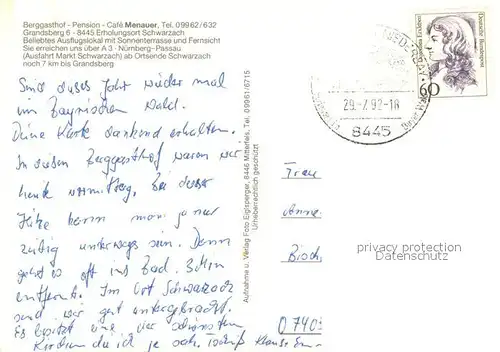 Berggasthof - Pension - Café Menauer, Tel. 09962/632
Grandsberg 6 - 8445 Erholungsort Schwarzach
Beliebtes Ausflugslokal mit Sonnenterrasse und Fernsicht
Sie erreichen uns über A 3 - Nürnberg-Passau
(Ausfahrt Markt Schwarzach) ab Ortsende Schwarzach
noch 7 km bis Grandsberg
Sind dieses Jahr wieder mal
im Bayrischen Wald.
Deine Karte dankend erhalten.
In diesem Berggasthof waren wir
heute vormittag, bei dieser
Hitze kann man ja nur
zeitig unterwegs sein. Dann
geht es oft ins Bad. 3 Min
entfernt. Im Ort Schwarzach
sind wir gut untergebracht.
Es besitzt eine der schönsten
Kirchen du ja je sah.
Aufnahme u. Verlag Foto Eiglsperger, 8446 Mitterfels, Tel. 09961/6715
Urheberrechtlich geschützt
29.-7.92-18
8445
Deutsche Bundespost
60
Frau
Anne
Bisch
O 740
privacy protection
Datenschutz